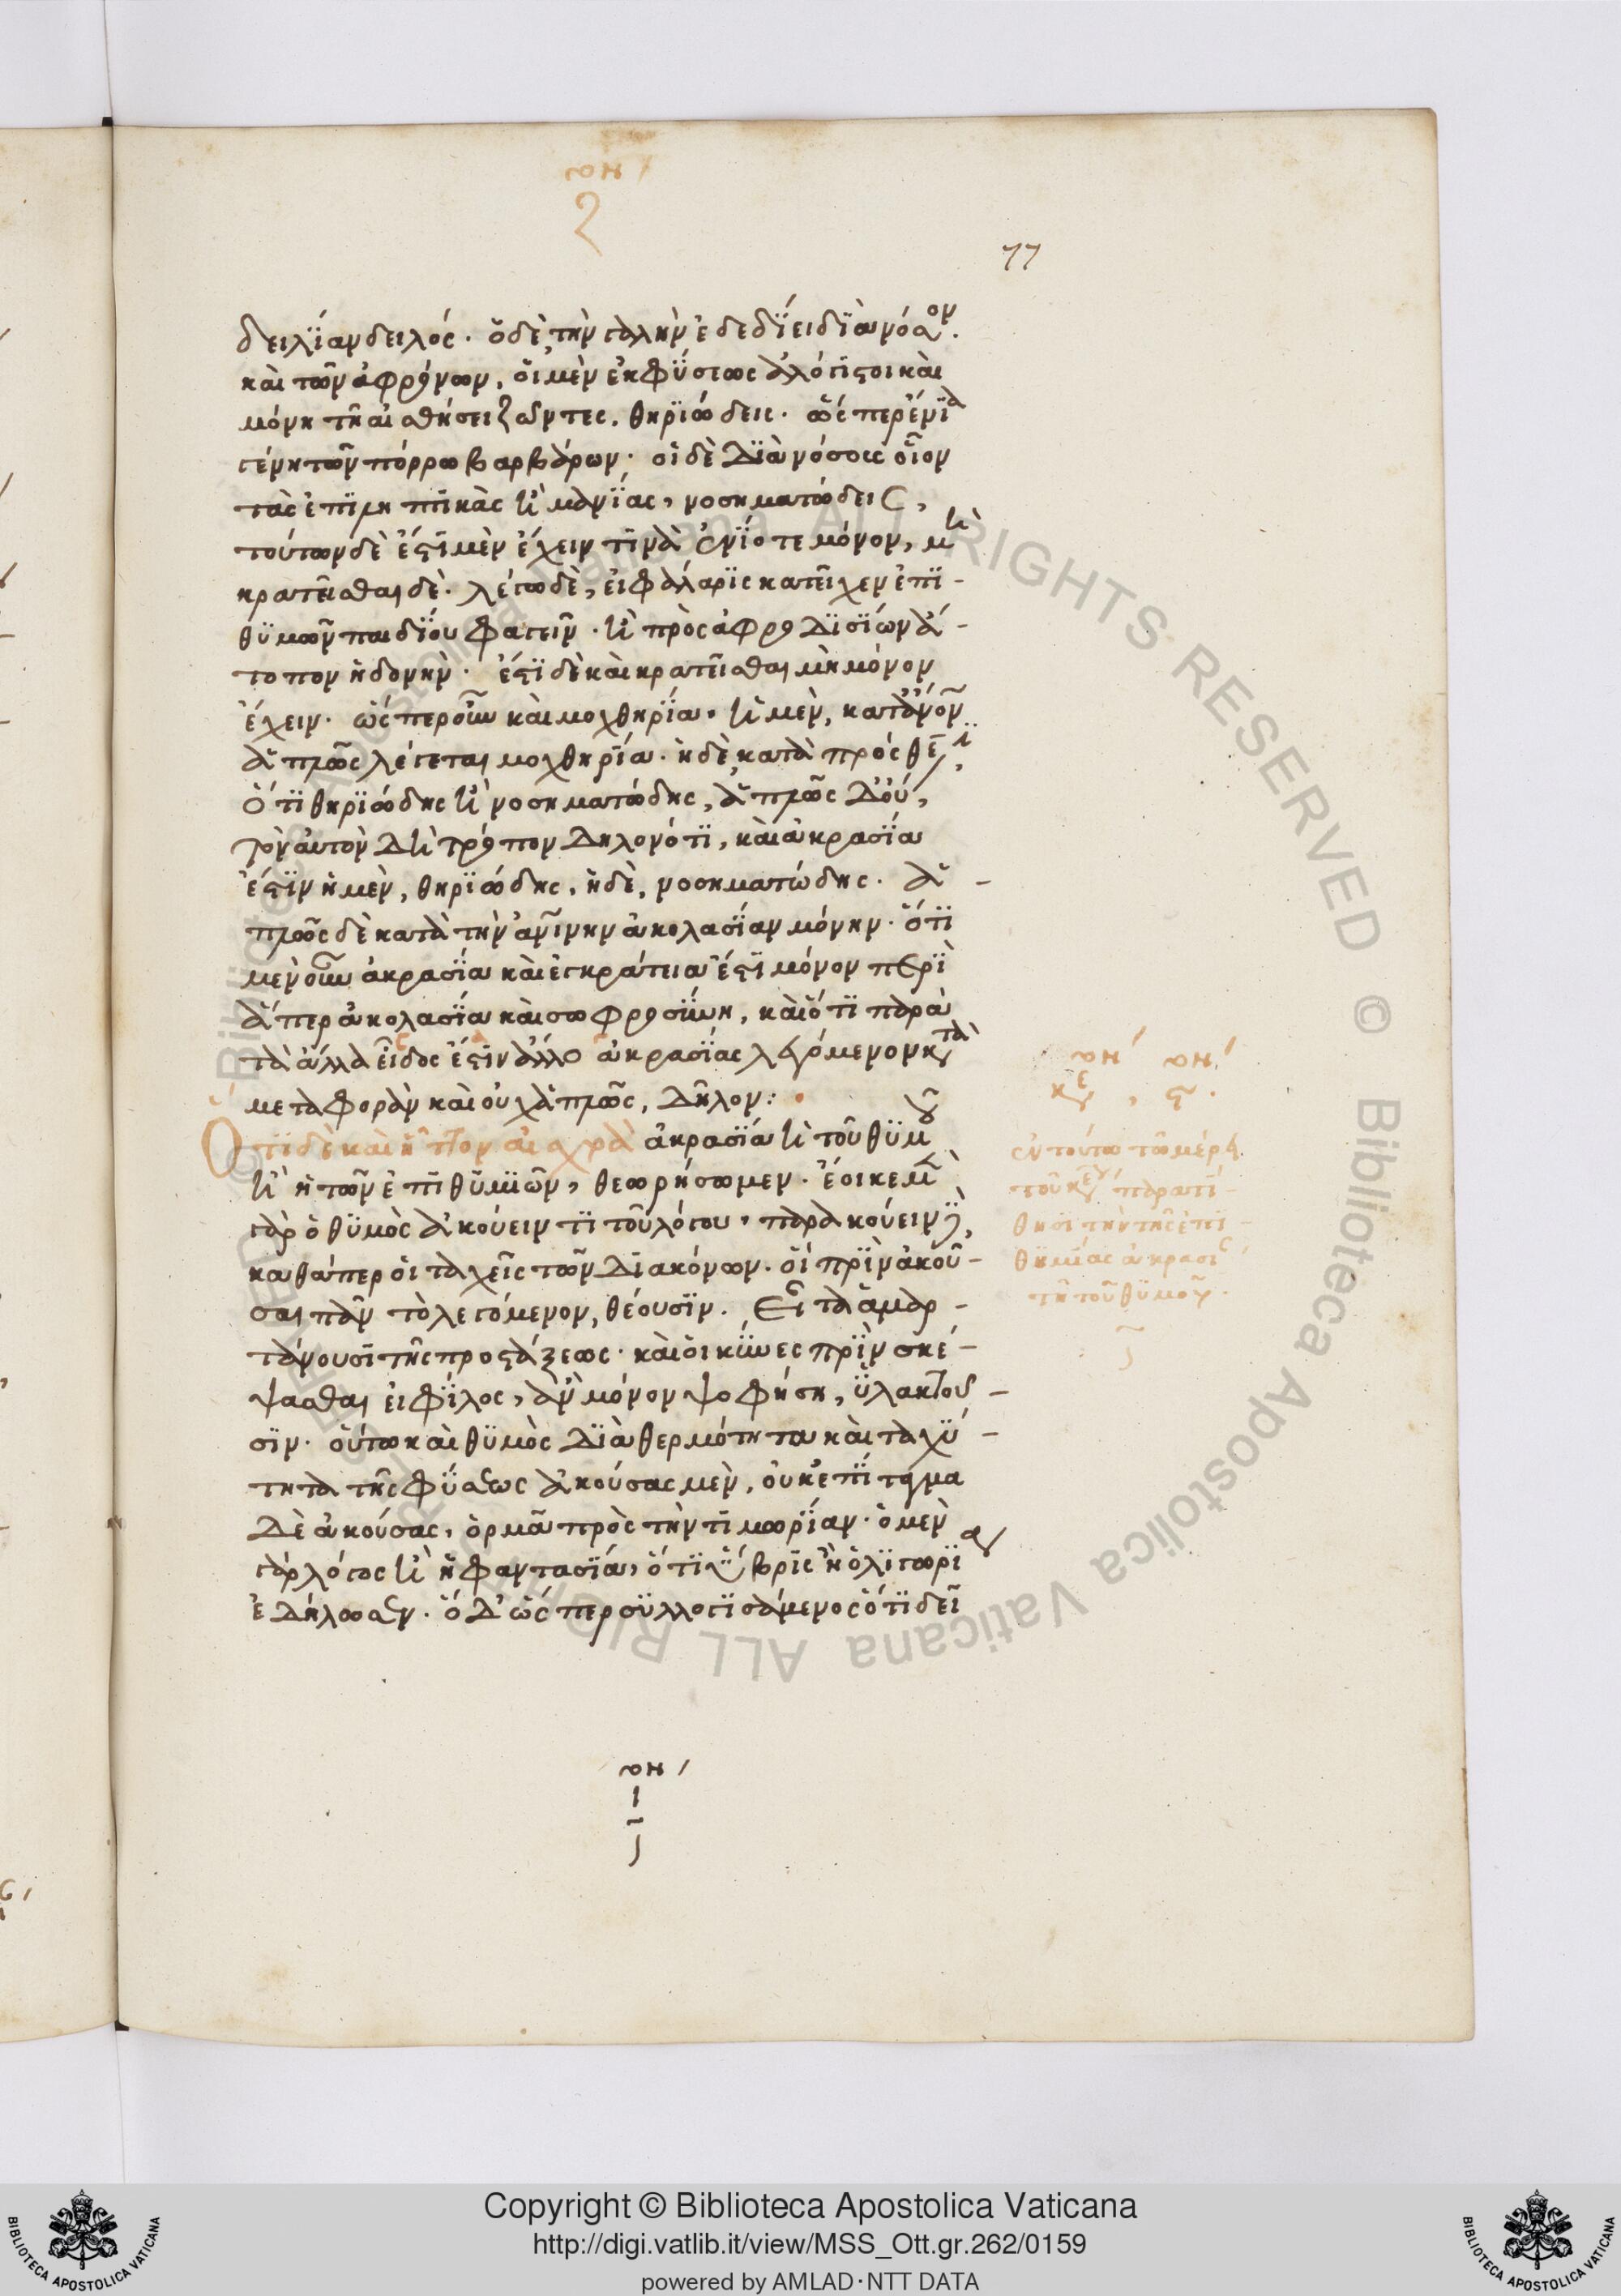 ση΄
77
δειλίαν δειλός. ὁ δὲ τὴν γαλῆν ἐδεδίει διὰ νόσον.
καὶ τῶν ἀφρόνων, οἱ μὲν ἐκ φύσεως ἀλόγιστοι καὶ
μόνη τῇ αἰσθήσει ζῶντες, θηριώδεις. ὥσπερ ἔνια
γένη τῶν πόρρω βαρβάρων. οἱ δὲ διὰ νόσους οἷον
τὰς ἐπιληπτικὰς ἢ μανίας, νοσηματώδεις,
τούτων δὲ ἔστι μὲν ἔχειν τινὰ ἐνίοτε μόνον, μὴ
κρατεῖσθαι δὲ. λέγω δὲ, εἰ φάλαρις κατεῖχεν ἐπι-
θυμῶν παιδίου φαγεῖν. ἢ πρὸς ἀφροδισίων ἄ-
τοπον ἡδονὴν. ἔστι δὲ καὶ κρατεῖσθαι μὴ μόνον
ἔχειν. ὥσπερ οὖν καὶ μοχθηρία, ἡ μὲν, κατ' ἄνον
ἁπλῶς λέγεται μοχθηρία. ἡ δὲ κατὰ πρόσθεσιν,
ὅτι θηριώδης ἢ νοσηματώδης, ἁπλῶς δ' οὔ,
τὸν αὐτὸν δὴ τρόπον δηλονότι, καὶ ἀκρασία
ἐστὶν ἡ μὲν, θηριώδης, ἡ δὲ, νοσηματώδης. ἁ-
πλῶς δὲ κατὰ τὴν ἀνίνην ἀκολασίαν μόνην. ὅτι
μὲν οὖν ἀκρασία καὶ ἐγκράτεια ἐστὶ μόνον περὶ
ἅπερ ἀκολασία καὶ σωφροσύνη, καὶ ὅτι παρὰ
τὰ ἄλλα εἶδος ἐστὶν ἄλλο ἀκρασίας λεγόμενον κατὰ
μεταφορὰν καὶ οὐχ ἁπλῶς, δῆλον:
Ὅτι δὲ καὶ ἧττον αἰσχρὰ ἀκρασία ἡ τοῦ θυμοῦ
ἢ ἡ τῶν ἐπιθυμιῶν, θεωρήσωμεν. ἔοικε μὲν
γὰρ ὁ θυμὸς ἀκούειν τι τοῦ λόγου, παρακούειν δὲ,
καθάπερ οἱ ταχεῖς τῶν διακόνων. οἳ πρὶν ἀκοῦ-
σαι πᾶν τὸ λεγόμενον, θέουσιν. εἶτα ἁμαρ-
τάνουσι τῆς προστάξεως. καὶ οἱ κύνες πρὶν σκέ-
ψασθαι εἰ φίλος, ἂν μόνον ψοφήσῃ, ὑλακτοῦ-
σιν. οὕτω καὶ θυμὸς διὰ θερμότητα καὶ ταχύ-
τητα τῆς φύσεως ἀκούσας μὲν, οὐκ ἐπίταγμα
δὲ ἀκούσας, ὁρμᾶ πρὸς τὴν τιμωρίαν. ὁ μὲν
γὰρ λόγος ἢ ἡ φαντασία, ὅτι ὕβρις ἢ ὀλιγωρία
ἐδήλωσεν. ὁ δ' ὥσπερ συλλογισάμενος ὅτι δεῖ
ση΄ ση΄
ἐν τούτω τῶ μέρει
τοῦ κειμένου παρατί-
θησι τὴν τῆς ἐπι-
θυμίας ἀκρασίαν
τῇ τοῦ θυμοῦ.
ση΄
Copyright © Biblioteca Apostolica Vaticana
http://digi.vatlib.it/view/MSS_Ott.gr.262/0159
powered by AMLAD·NTT DATA
BIBLIOTECA APOSTOLICA VATICANA
BIBLIOTECA APOSTOLICA VATICANA
© Biblioteca Apostolica Vaticana ALL RIGHTS RESERVED © Biblioteca Apostolica Vaticana ALL RIGHTS RESERVED